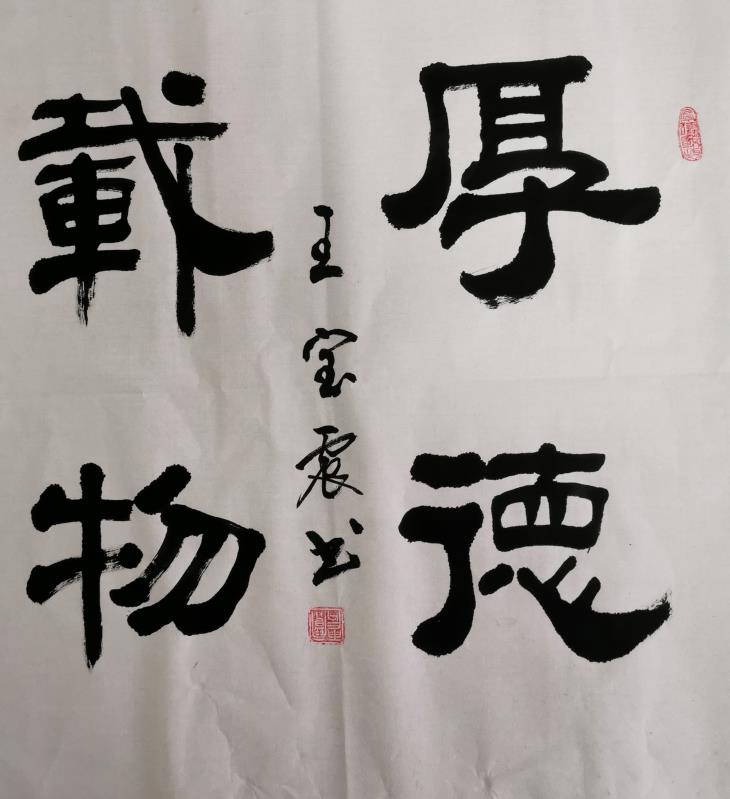 厚德
載物
王宝震书